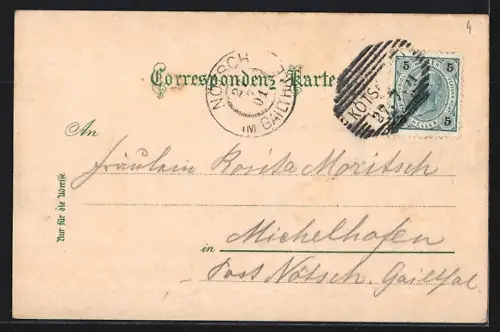 4
Correspondenz-Karte
NÖTSCH
IM GAILTHAL
01
KÖTSC
27
5 5
HELLER
5 5
An
Fräulein Rosita Moritsch
Nur für die Adresse.
in Michelhofen
Post Nötsch, Gailthal.